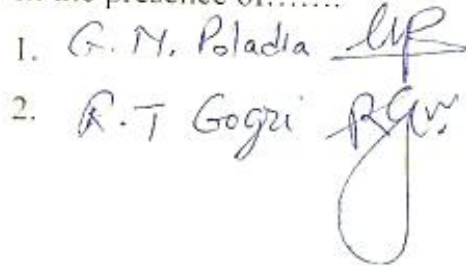 in the presence of.......
1. G. M. Poladia
2. R. T Gogri